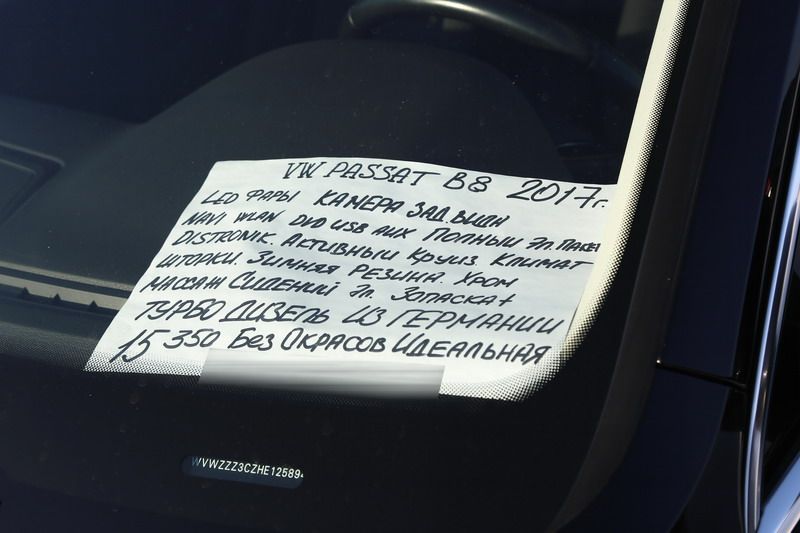 VW PASSAT B8 2017г.
LED ФАРЫ КАМЕРА ЗАД.ВИДН
NAVI WLAN DVD USB AUX ПОЛНЫЙ ЭЛ.ПАКЕ
DISTRONIK. АКТИВНЫЙ КРУИЗ КЛИМАТ
ШТОРКИ. ЗИМНЯЯ РЕЗИНА. ХРОМ
МАССАЖ СИДЕНИЙ ЭЛ. ЗОПАСКА+
ТУРБО ДИЗЕЛЬ ИЗ ГЕРМАНИИ
15 350 БЕЗ ОКРАСОВ ИДЕАЛЬНАЯ
WVWZZZ3CZHE12589